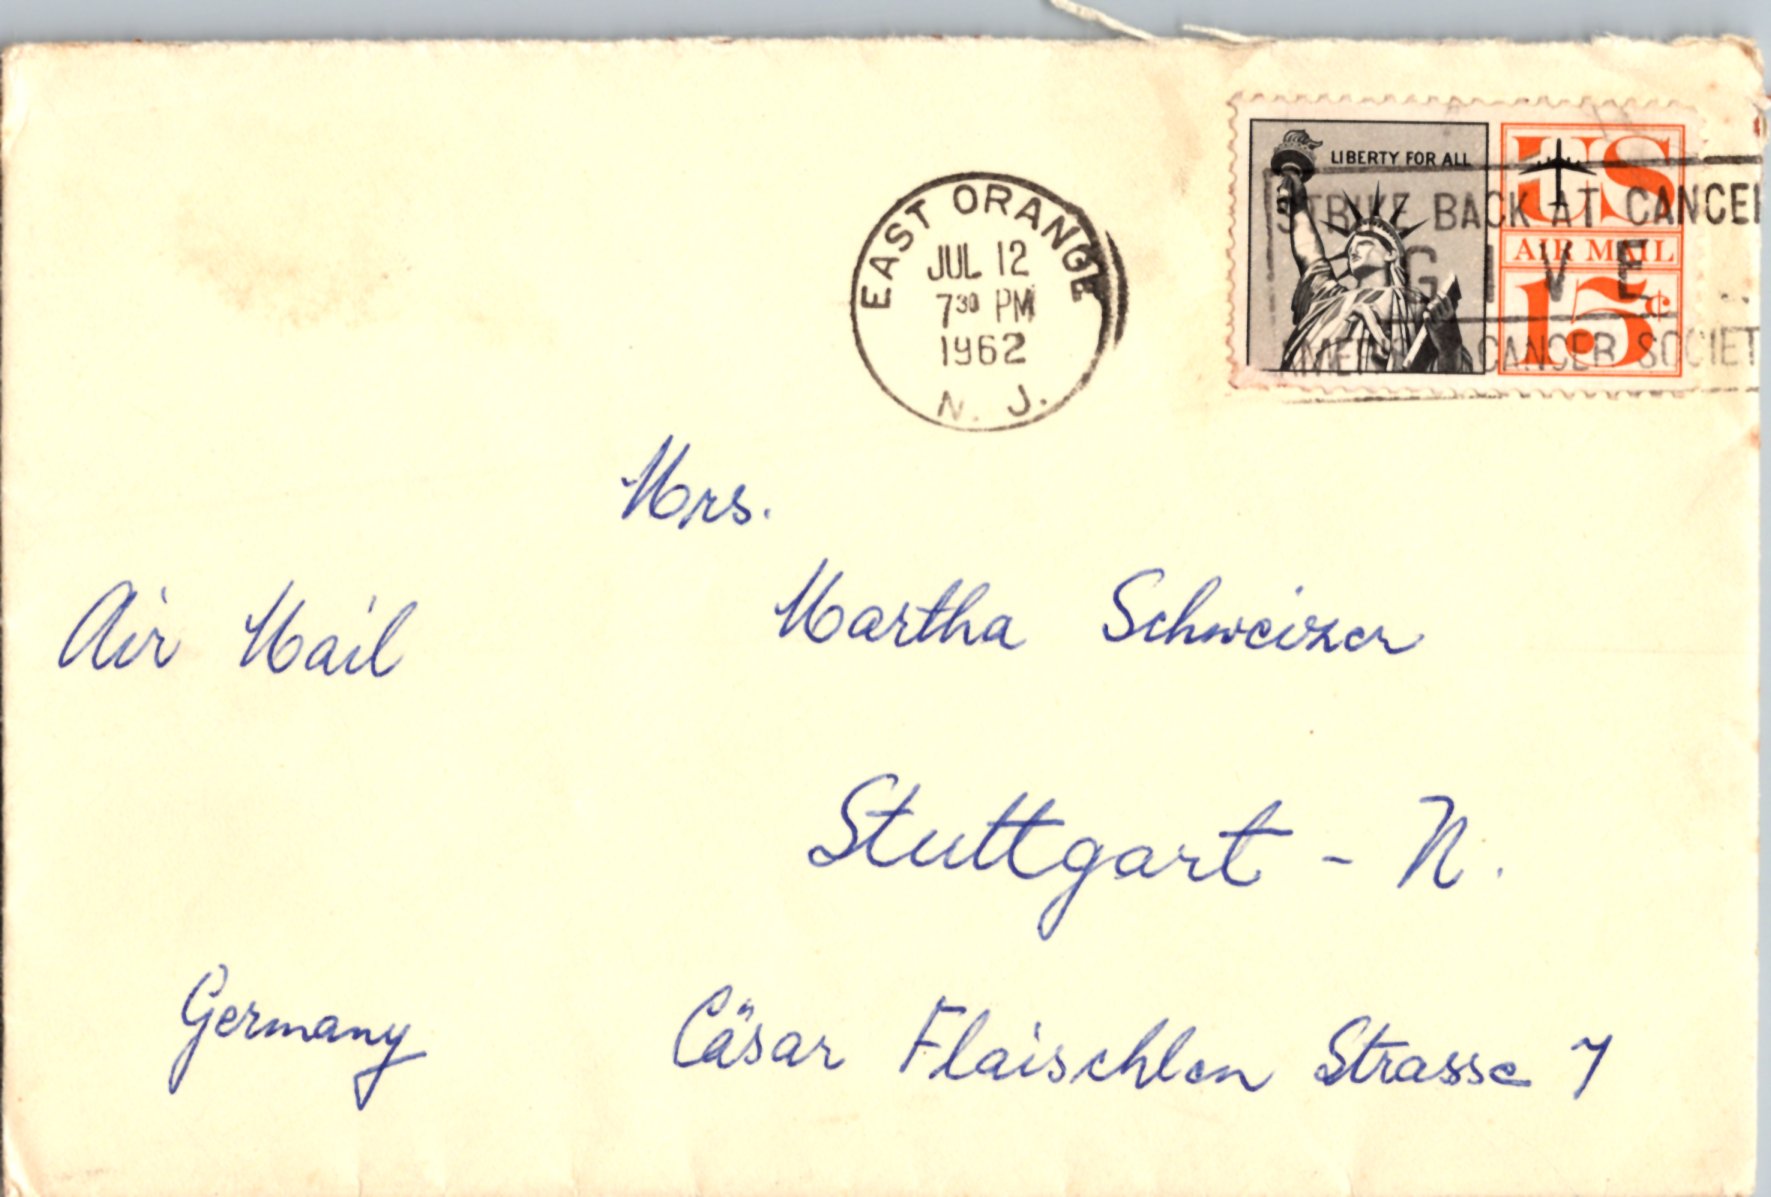 EAST ORANGE
JUL 12
7 30 PM
1962
N. J.
LIBERTY FOR ALL
US
AIR MAIL
15¢
STRIKE BACK AT CANCER
GIVE
AMERICAN CANCER SOCIET
Mrs.
Martha Schweizer
Air Mail
Stuttgart - N.
Germany
Cäsar Flaischlen Strasse 7